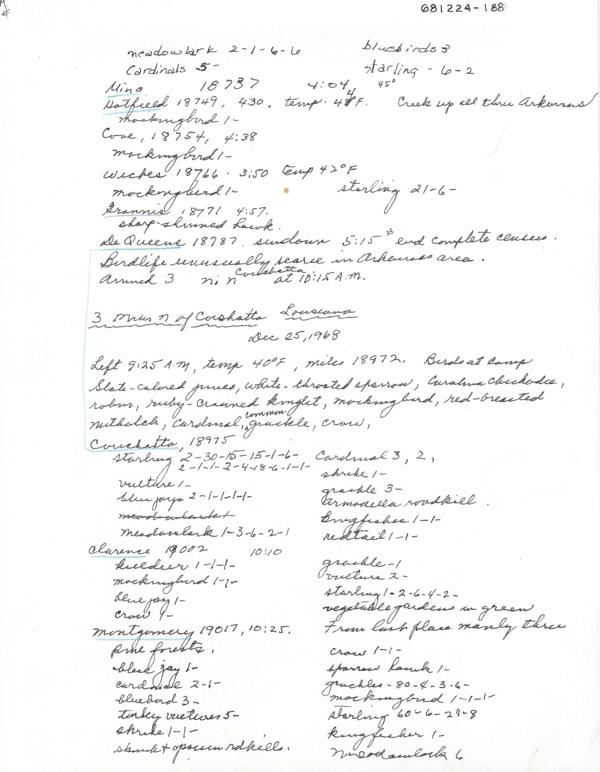 681224-188
meadowlark 2-1-6-6 bluebirds 3
Cardinals 5- starling - 6-2
Mina 18737 4:04 45°
Hatfield 18749, 4:30, temp. 44°F. Creek up all thru Arkansas
mockingbird 1-
Cove, 18754, 4:38
mockingbird 1-
Wickes 18766. 3:50 temp 42°F
mockingbird 1- starling 21-6-
Grannis 18771 4:57.
sharp-shinned hawk.
De Queens 18787. sundown 5:15 end complete census.
Birdlife unusually scarce in Arkansas area.
Arrived 3 mi N Coushatta at 10:15 A.M.
3 Miles N of Coushatta Louisiana
Dec 25, 1968
Left 9:25 A.M, temp 40°F, miles 18972. Birds at camp
Slate-colored juncos, white-throated sparrow, Carolina Chickadee,
robin, ruby-crowned kinglet, mockingbird, red-breasted
nuthatch, Cardinal, common grackle, crow,
Coushatta, 18975
starling 2-30-15-15-1-6- Cardinal 3, 2,
2-1-1-2-4-18-6-1-1- shrike 1-
vulture 1- grackle 3-
blue jays 2-1-1-1-1- Armodella roadkill.
meadowlark Kingfisher 1-1-
Meadowlark 1-3-6-2-1 redtail 1-1-
Clarence 19002 10:10
killdeer 1-1-1- grackle-1
mockingbird 1-1- vulture 2-
blue jay 1- starling 1-2-6-4-2-
crow 4- vegetable gardens in green
Montgomery 19017, 10:25. From last place manly three
pine forests, crow 1-1-
blue jay 1- sparrow hawk 1-
cardinal 2-1- grackles-80-4-3-6-
bluebird 3- mockingbird 1-1-1-
turkey vultures 5- starling 60-6-24-8
shrike 1-1- kingfisher 1-
skunk + opossum rdkills. Meadowlark 6